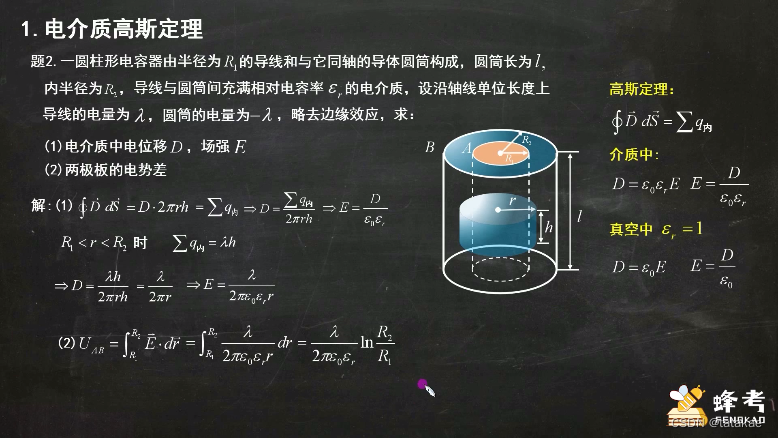 1.电介质高斯定理
题2.一圆柱形电容器由半径为R₁的导线和与它同轴的导体圆筒构成，圆筒长为l,
内半径为R₂，导线与圆筒间充满相对电容率 εᵣ 的电介质，设沿轴线单位长度上
导线的电量为 λ，圆筒的电量为−λ，略去边缘效应，求：
(1)电介质中电位移D，场强E
(2)两极板的电势差
解:(1) ∮D⃗ dS⃗ = D·2πrh = ∑q内 ⇒ D = ∑q内/2πrh ⇒ E = D/ε₀εᵣ
R₁<r<R₂ 时 ∑q内 = λh
⇒ D = λh/2πrh = λ/2πr ⇒ E = λ/2πε₀εᵣr
(2) U_AB = ∫_R₁^R₂ E⃗·dr⃗ = ∫_R₁^R₂ λ/2πε₀εᵣr dr = λ/2πε₀εᵣ ln R₂/R₁
B
A
R₂
R₁
r
h
l
高斯定理:
∮D⃗ dS⃗ = ∑q内
介质中:
D = ε₀εᵣE E = D/ε₀εᵣ
真空中 εᵣ = 1
D = ε₀E E = D/ε₀
蜂考
FENGKAO